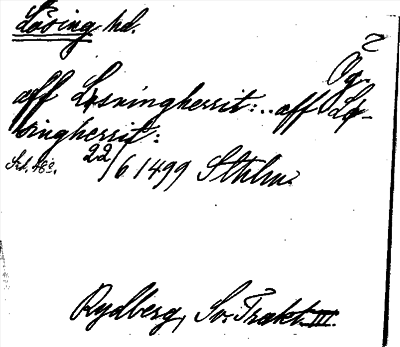 Lösing hd.
Ög.
aff Løsningherrit: .. aff Lø-
singherrit:
22/6 1499 Sthlm.
Rydberg, Sv. Trakt. III.